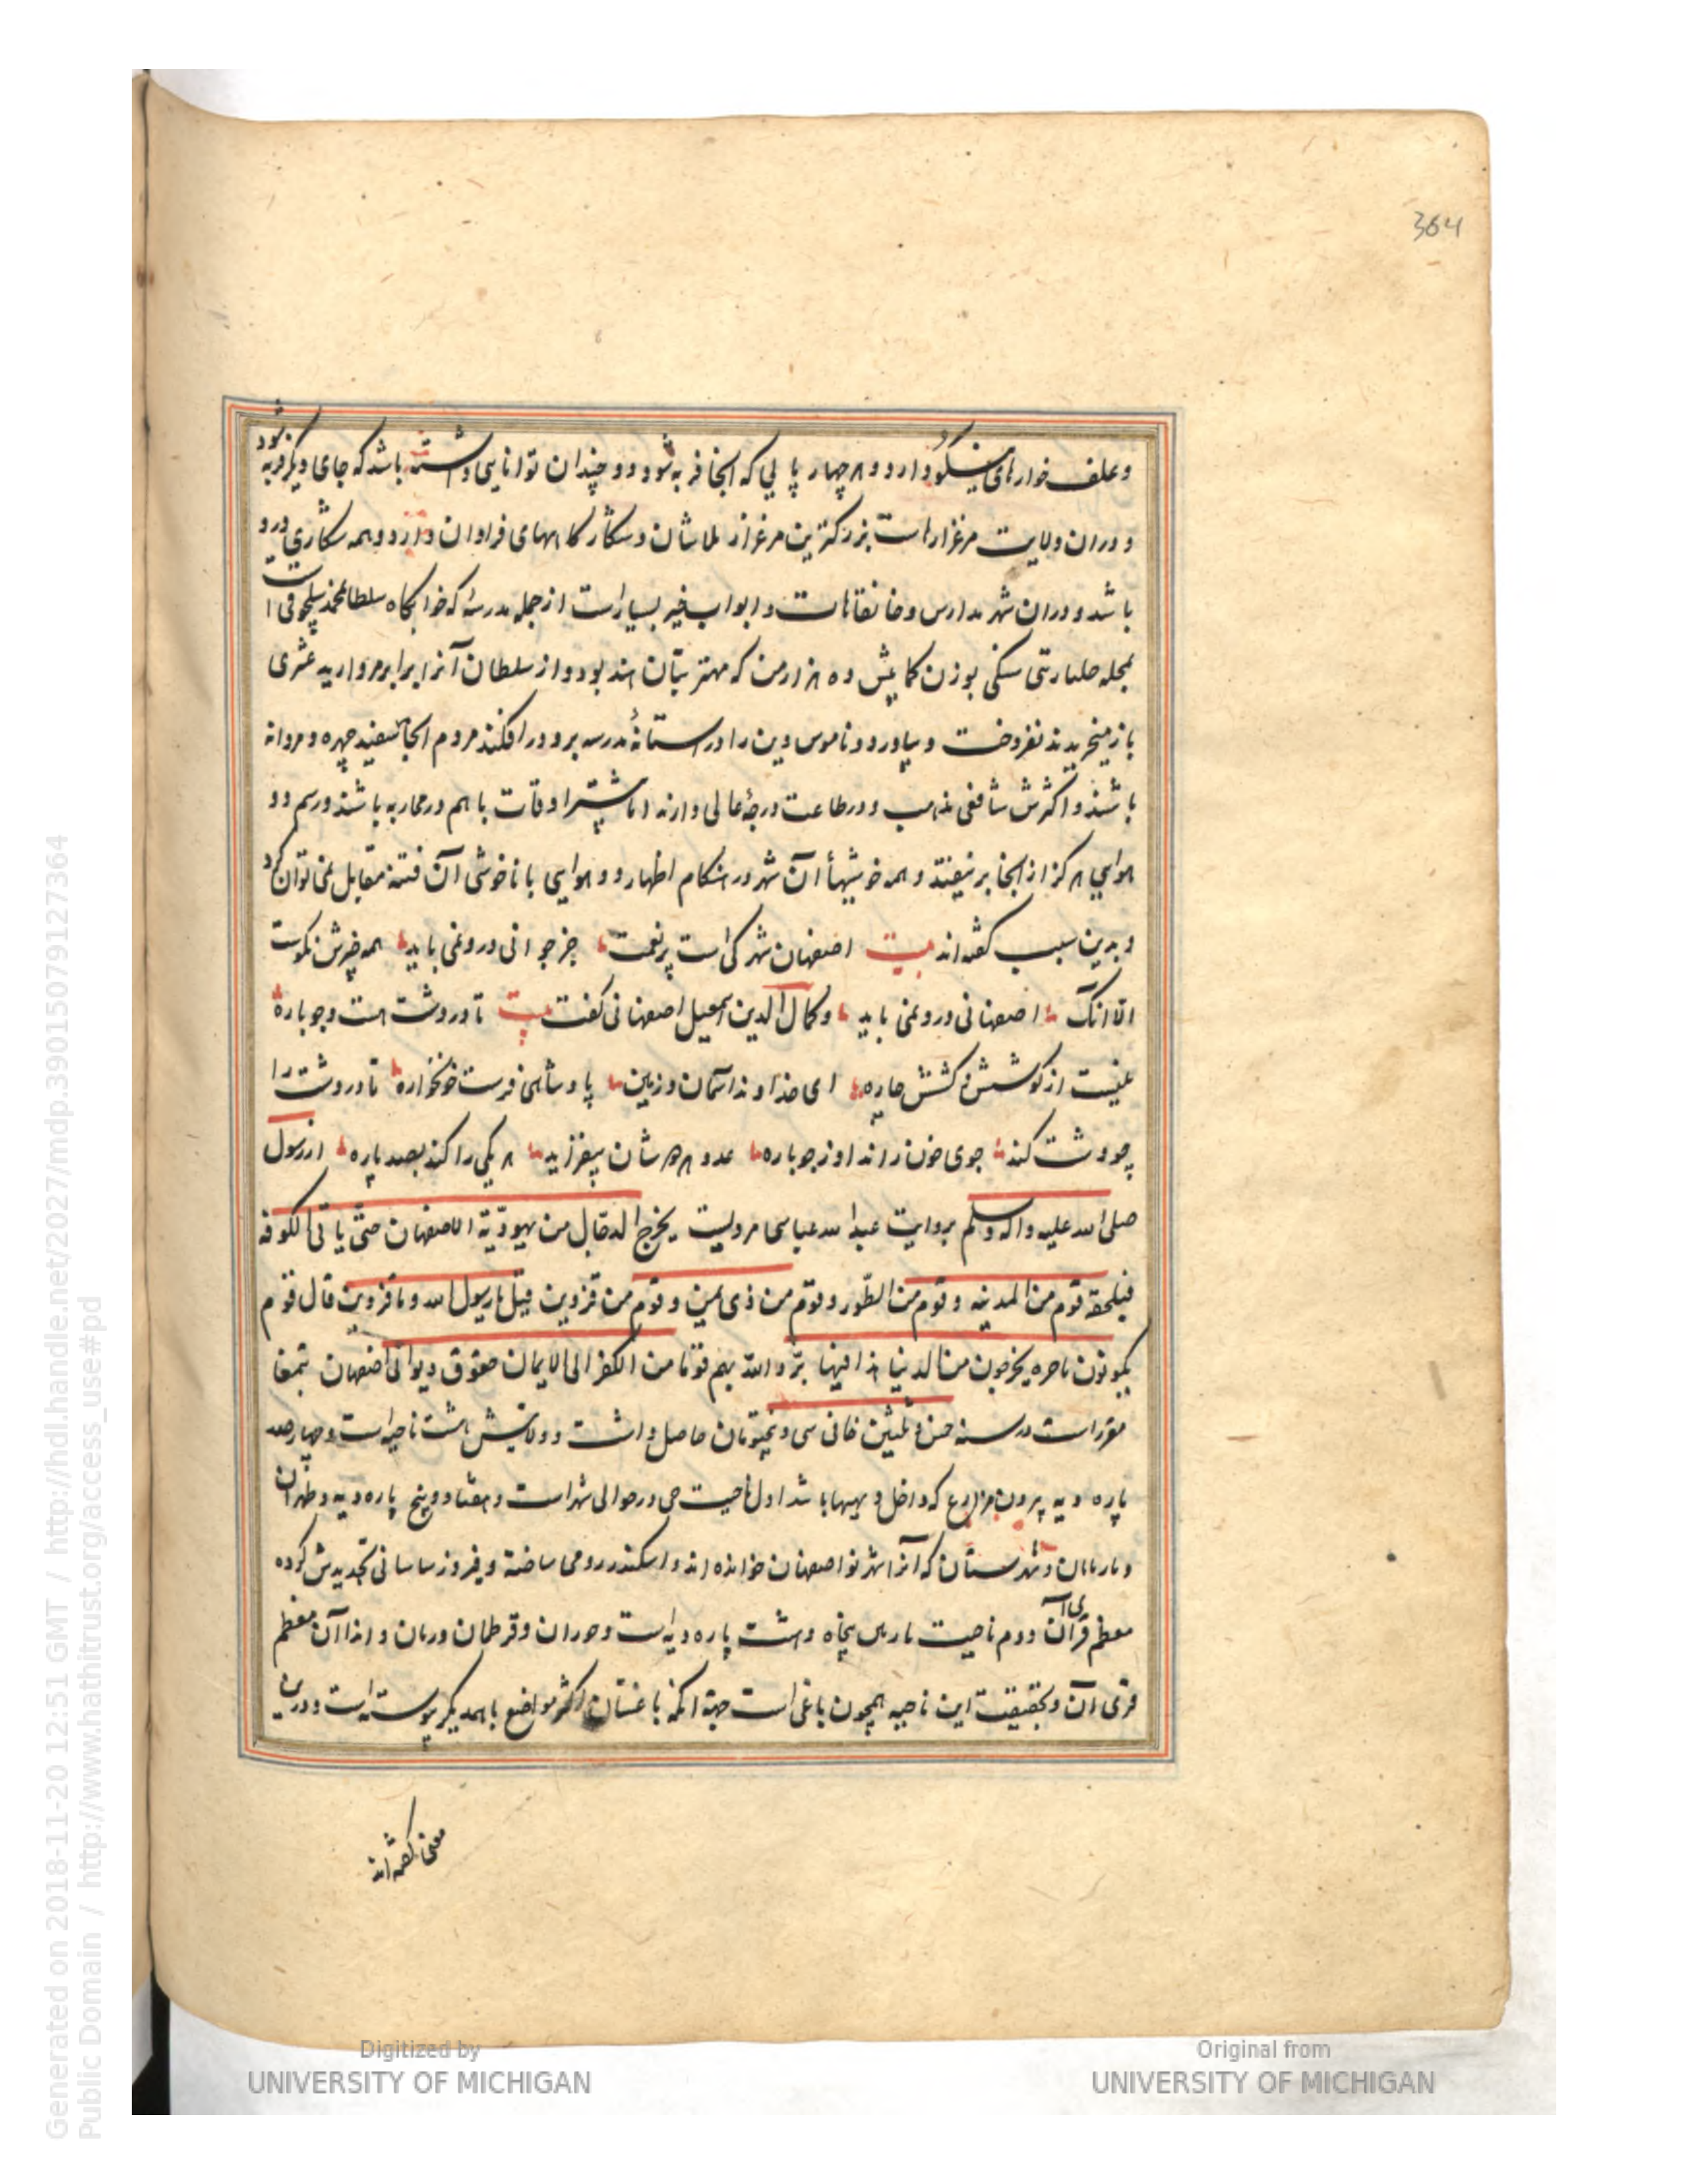 364
وعلف خوارهای نیکو دارد و هر چهار پایی که آنجا فربه شود دو چندان توانایی داشته باشد که جای دیگر فربه شود
و در آن ولایت مرغزار است بزرگترین مرغزار بلاشان و شکار کاههای فراوان دارد و همه شکاری درو
باشد و در آن شهر مدارس و خانقاهات و ابواب خیر بسیار است از جمله مدرسه که خوابگاه سلطان محمد سلجوقی است
بمحله جلباره بتی سنگی بوزن کمابیش ده هزار من که مهتر بتان هند بود و از سلطان آنرا برابر مروارید عشری
باز میخریدند نفروخت و بیاورد و ناموس دین را در آستانهٔ مدرسه برو در افکند مردم آنجا سفید چهره و مردانه
باشند و اکثرش شافعی مذهب و در طاعت درجهٔ عالی دارند اما بیشتر اوقات با هم در محاربه باشند و رسم دو
هوایی هرگز از آنجا بر نیفتد و همه خوشیهاء آن شهر در هنگام اظهار دو هوایی با ناخوشی آن فتنه مقابل نمی توان کرد
و بدین سبب گفته اند بیت اصفهان شهرکی است پر نعمت جز جوانی درو نمی باید همه چیزش نکوست
الا آنک اصفهانی درو نمی باید و کمال الدین اسمعیل اصفهانی گفت بیت تا در دشت هست و جوباره
نیست از کوشش و کشش چاره ای خداوند آسمان و زمین پادشاهی فرست خونخواره تا در دشت را
چو دشت کند جوی خون راند او ز جوباره عدد هر هرشان بیفزاید هر یکی را کند بصد پاره از رسول
صلی الله علیه واله وسلم بروایت عبد الله عباس مرویست یخرج الدجال من یهودیة الاصفهان حتی یاتی الکوفه
فیلحقه قوم من المدینه و قوم من الطور و قوم من ذی یمن و قوم من قزوین قیل یا رسول الله و ما قزوین قال قوم
یکونون باخره یخرجون من الدنیا هذا فیها یرد الله بهم قوما من الکفر الی الایمان حقوق دیوانی اصفهان بتمغا
مقرر است در سنه خمس و ثلثین خانی سی و پنج تومان حاصل داشت و ولایتش هشت ناحیه است و چهار صد
پاره دیه بیرون مزارع که داخل دیهها باشد اول ناحیت جی در حوالی شهر است و هفتاد و پنج پاره دیه و طهران
و ماربانان و شهرستان که آنرا شهر نو اصفهان خوانده اند و اسکندر رومی ساخته و فیروز ساسانی تجدیدش کرده
معظم قرای آن دوم ناحیت ماربین پنجاه و هشت پاره دیه است و خوران و قرطمان و رنان و اندا آن معظم
قرای آن و بحقیقت این ناحیه همچون باغی است جهة آنکه باغستان اکثر مواضع با همدیگر پیوسته است و درین
معنی گفته اند
Generated on 2018-11-20 12:51 GMT / http://hdl.handle.net/2027/mdp.39015079127364
Public Domain / http://www.hathitrust.org/access_use#pd
Digitized by
UNIVERSITY OF MICHIGAN
Original from
UNIVERSITY OF MICHIGAN